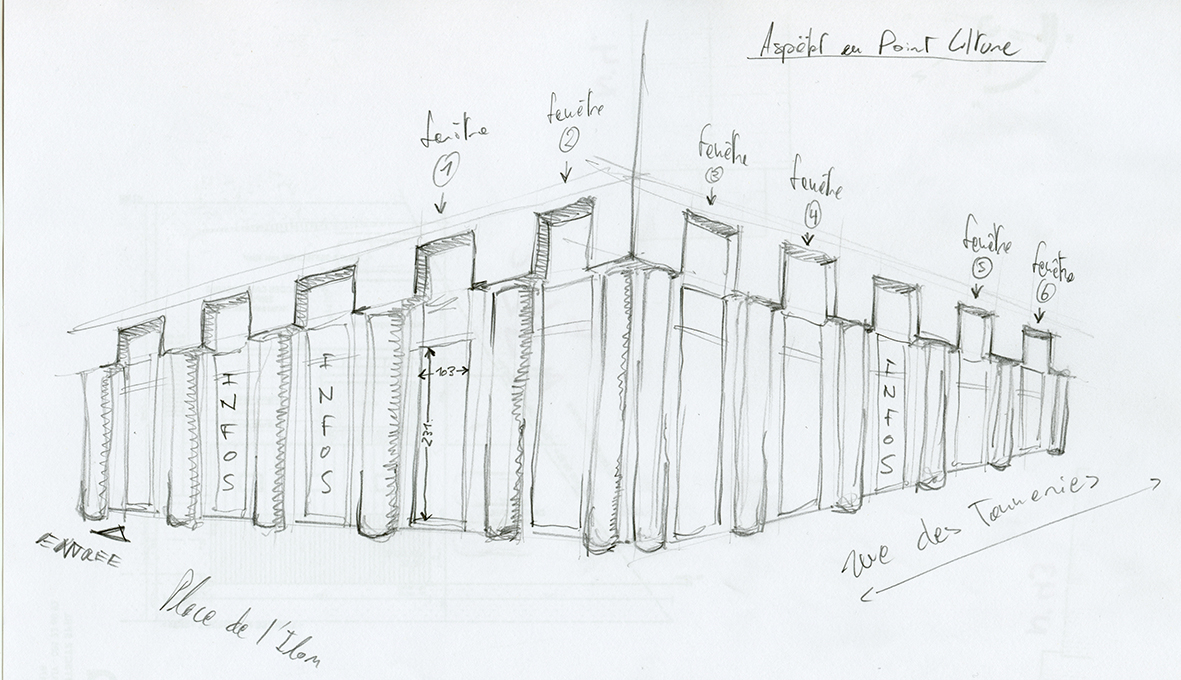 Aspëkt au Point Culture
fenêtre
1
fenêtre
2
fenêtre
3
fenêtre
4
fenêtre
5
fenêtre
6
INFOS
INFOS
INFOS
103
231
ENTREE
Place de l'Ilon
rue des Tanneries